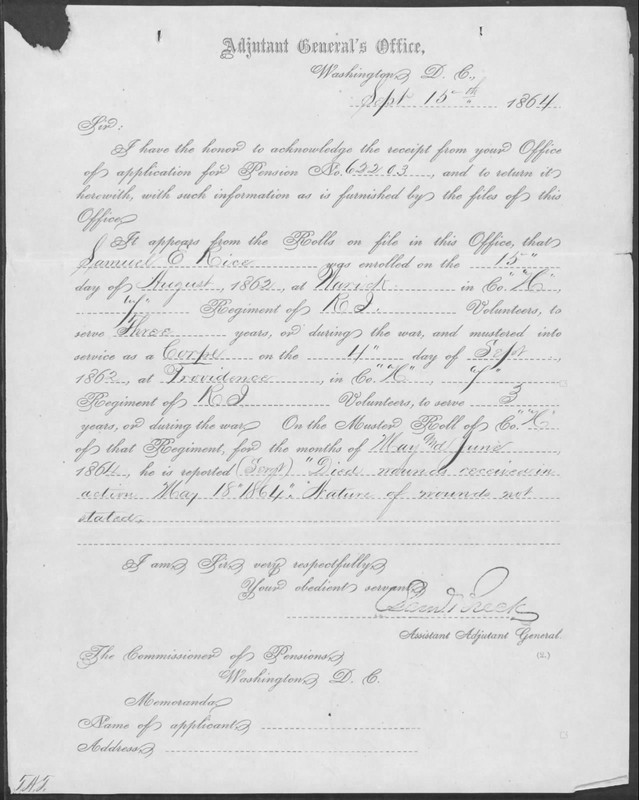 Adjutant General's Office,
Washington, D. C.,
Sept 15th 1864
Sir:
I have the honor to acknowledge the receipt from your Office
of application for Pension No. 62203, and to return it
herewith, with such information as is furnished by the files of this
Office.
It appears from the Rolls on file in this Office, that
Samuel E Rice was enrolled on the 15"
day of August, 1862, at Warick in Co. "H",
7" Regiment of R I. Volunteers, to
serve Three years, or during the war, and mustered into
service as a Corpl on the 4" day of Sept,
1862, at Providence, in Co. "H", 7"
Regiment of R I Volunteers, to serve 3
years, or during the war. On the Muster Roll of Co. "H"
of that Regiment, for the months of May and June,
1864, he is reported (Sergt) "Died wounds received in
action May 18" 1864". Nature of wounds not
stated.
I am, Sir, very respectfully,
Your obedient servant,
Saml Breck
Assistant Adjutant General.
The Commissioner of Pensions,
(2.)
Washington, D. C.
Memoranda
Name of applicant,
Address,